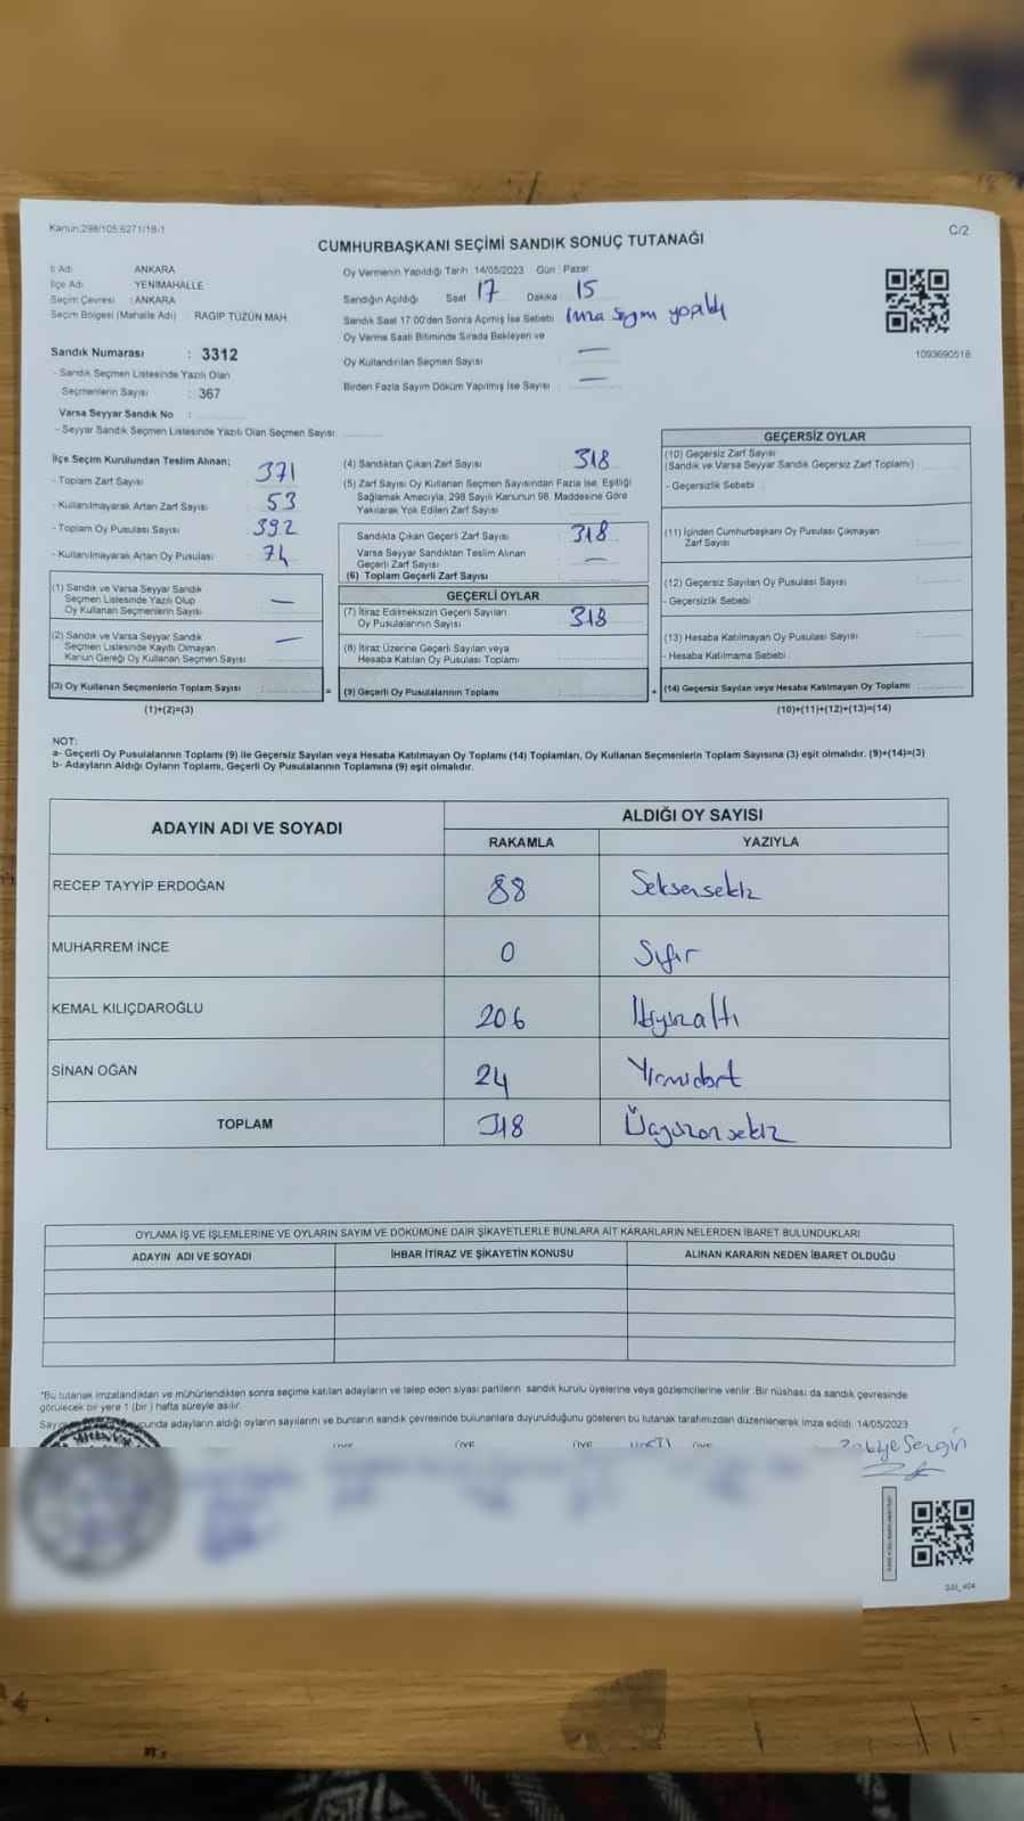 Kanun:298/105,6271/18-1
C/2
CUMHURBAŞKANI SEÇİMİ SANDIK SONUÇ TUTANAĞI
İl Adı ANKARA
İlçe Adı YENİMAHALLE
Seçim Çevresi : ANKARA
Seçim Bölgesi (Mahalle Adı) RAGIP TÜZÜN MAH.
Sandık Numarası : 3312
- Sandık Seçmen Listesinde Yazılı Olan
Seçmenlerin Sayısı : 367
Varsa Seyyar Sandık No :
- Seyyar Sandık Seçmen Listesinde Yazılı Olan Seçmen Sayısı
Oy Vermenin Yapıldığı Tarih : 14/05/2023 Gün : Pazar
Sandığın Açıldığı Saat 17 Dakika 15
Sandık Saat 17:00'den Sonra Açılmış İse Sebebi İmza Sayımı yapıldı
Oy Verme Saati Bitiminde Sırada Bekleyen ve
Oy Kullandırılan Seçmen Sayısı —
Birden Fazla Sayım Döküm Yapılmış İse Sayısı —
1093690518
İlçe Seçim Kurulundan Teslim Alınan;
- Toplam Zarf Sayısı 371
- Kullanılmayarak Artan Zarf Sayısı 53
- Toplam Oy Pusulası Sayısı 392
- Kullanılmayarak Artan Oy Pusulası 74
(1) Sandık ve Varsa Seyyar Sandık
Seçmen Listesinde Yazılı Olup
Oy Kullanan Seçmenlerin Sayısı —
(2) Sandık ve Varsa Seyyar Sandık
Seçmen Listesinde Kayıtlı Olmayan
Kanun Gereği Oy Kullanan Seçmen Sayısı —
(3) Oy Kullanan Seçmenlerin Toplam Sayısı
(1)+(2)=(3)
(4) Sandıktan Çıkan Zarf Sayısı 318
(5) Zarf Sayısı Oy Kullanan Seçmen Sayısından Fazla İse, Eşitliği
Sağlamak Amacıyla, 298 Sayılı Kanunun 98. Maddesine Göre
Yakılarak Yok Edilen Zarf Sayısı
Sandıkta Çıkan Geçerli Zarf Sayısı 318
Varsa Seyyar Sandıktan Teslim Alınan
Geçerli Zarf Sayısı —
(6) Toplam Geçerli Zarf Sayısı
GEÇERLİ OYLAR
(7) İtiraz Edilmeksizin Geçerli Sayılan
Oy Pusulalarının Sayısı 318
(8) İtiraz Üzerine Geçerli Sayılan veya
Hesaba Katılan Oy Pusulası Toplamı
= (9) Geçerli Oy Pusulalarının Toplamı
GEÇERSİZ OYLAR
(10) Geçersiz Zarf Sayısı
(Sandık ve Varsa Seyyar Sandık Geçersiz Zarf Toplamı)
- Geçersizlik Sebebi
(11) İçinden Cumhurbaşkanı Oy Pusulası Çıkmayan
Zarf Sayısı
(12) Geçersiz Sayılan Oy Pusulası Sayısı
- Geçersizlik Sebebi
(13) Hesaba Katılmayan Oy Pusulası Sayısı
- Hesaba Katılmama Sebebi
+ (14) Geçersiz Sayılan veya Hesaba Katılmayan Oy Toplamı
(10)+(11)+(12)+(13)=(14)
NOT:
a- Geçerli Oy Pusulalarının Toplamı (9) ile Geçersiz Sayılan veya Hesaba Katılmayan Oy Toplamı (14) Toplamları, Oy Kullanan Seçmenlerin Toplam Sayısına (3) eşit olmalıdır. (9)+(14)=(3)
b- Adayların Aldığı Oyların Toplamı, Geçerli Oy Pusulalarının Toplamına (9) eşit olmalıdır.
ADAYIN ADI VE SOYADI ALDIĞI OY SAYISI
RAKAMLA YAZIYLA
RECEP TAYYİP ERDOĞAN 88 Seksensekiz
MUHARREM İNCE 0 Sıfır
KEMAL KILIÇDAROĞLU 206 İkiyüzaltı
SİNAN OĞAN 24 Yirmidört
TOPLAM 318 Üçyüzonsekiz
OYLAMA İŞ VE İŞLEMLERİNE VE OYLARIN SAYIM VE DÖKÜMÜNE DAİR ŞİKAYETLERLE BUNLARA AİT KARARLARIN NELERDEN İBARET BULUNDUKLARI
ADAYIN ADI VE SOYADI İHBAR İTİRAZ VE ŞİKAYETİN KONUSU ALINAN KARARIN NEDEN İBARET OLDUĞU
*Bu tutanak imzalandıktan ve mühürlendikten sonra seçime katılan adayların ve talep eden siyasi partilerin sandık kurulu üyelerine veya gözlemcilerine verilir. Bir nüshası da sandık çevresinde
görülecek bir yere 1 (bir) hafta süreyle asılır.
adayların aldığı oyların sayılarını ve bunların sandık çevresinde bulunanlara duyurulduğunu gösteren bu tutanak tarafımızdan düzenlenerek imza edildi. 14/05/2023
Sergin